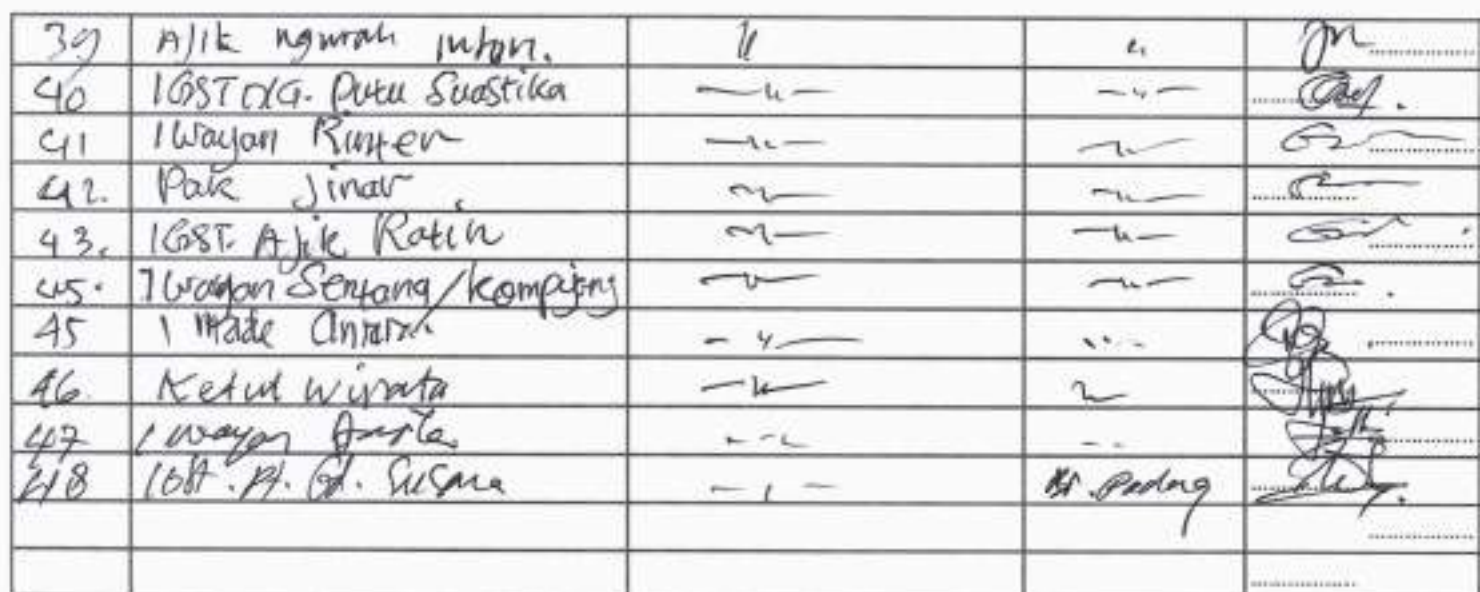 39 Ajik ngurah " "
40 IGST NG. Putu Suastika —"— —"—
41 I Wayan Rinten —"— —"—
42. Pak Jinar —"— —"—
43. IGST. Ajik Ratin —"— —"—
45. I Wayan Sentang/Kompiang —"— —"—
45 I Made Antara —"— —"—
46 Ketut Wirata —"— —"—
47 I Wayan —"— —"—
48 IGst. Pt. Gd. Br. Padang